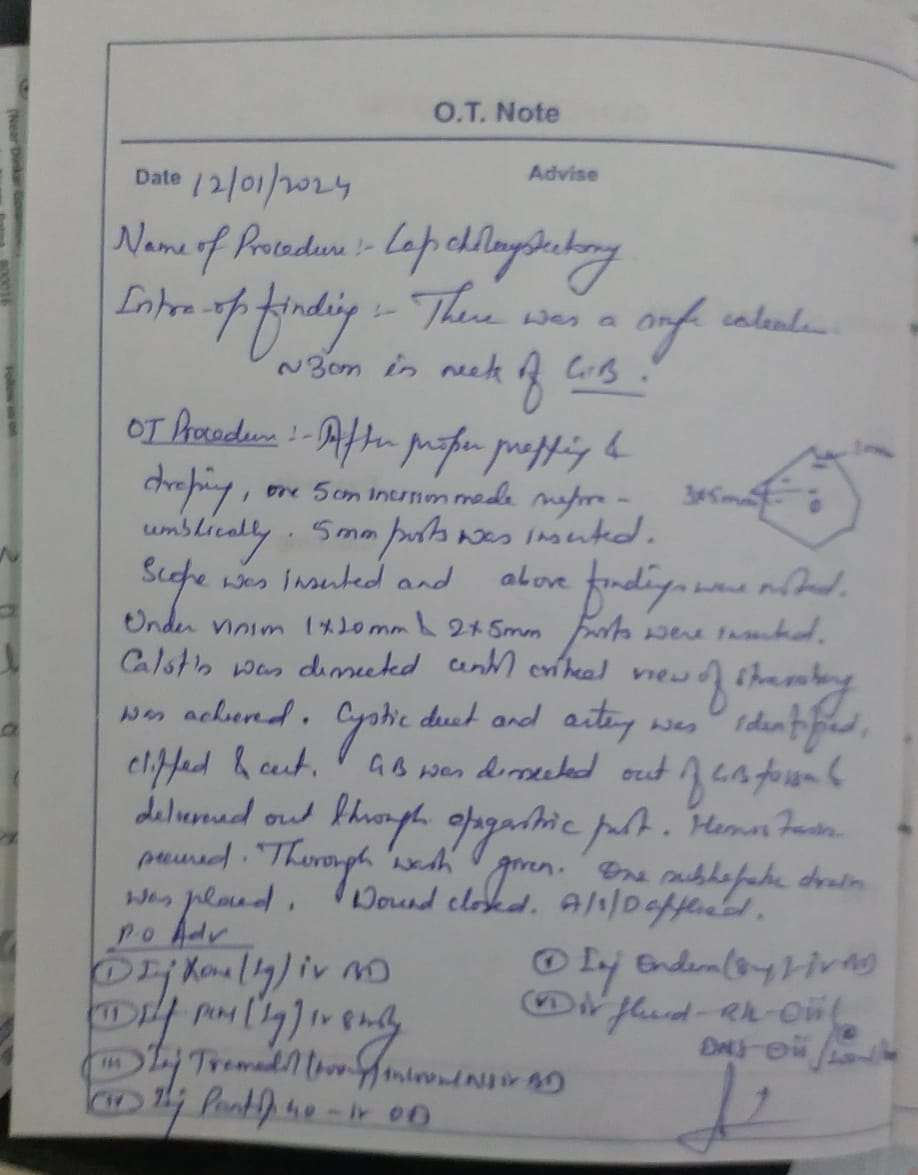 O.T. Note
Date 12/01/2024
Advise
Name of Procedure :- Lap cholecystectomy
Intra-op finding :- There was a single calculus
~3cm in neck of G.B.
OT Procedure :- After proper prepping &
draping, one 5cm incision made supra-
umblically. 5mm ports was inserted.
Scope was inserted and above findings were noted.
Under vision 1x10mm & 2x5mm ports were inserted.
Calot's was dissected until critical view of
was achieved. Cystic duct and artery was identified,
clipped & cut. GB was dissected out of GB fossa &
delivered out through epigastric port. Hemostasis
secured. Thorough wash given. One subhepatic drain
was placed. Wound closed. A/S/D applied.
P.O Adv
(i) Inj Xone (1g) iv BD
(ii) Inj PCM (1g) iv
(iii) Inj Tramadol in NS iv BD
(iv) Inj Pantop 40 - iv OD
Inj (8mg) iv
(vi) iv fluid - RL - Oii
DNS - Oii